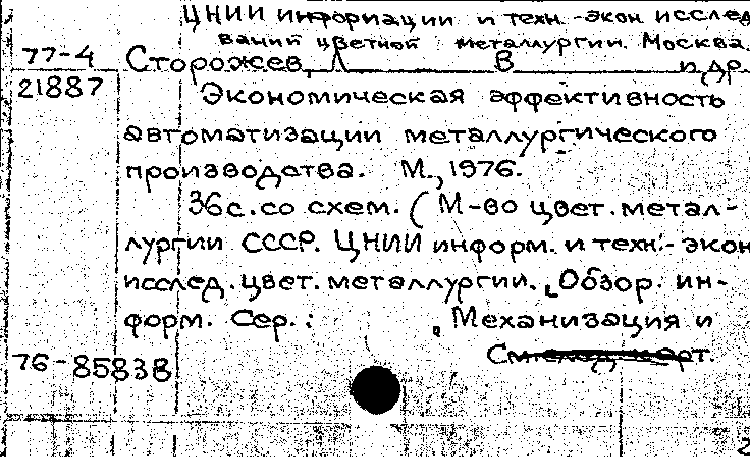 ЦНИИ информации и техн.-экон исслед
ваний цветной металлургии. Москва
77-4 Сторожев, Л В и др.
21887 Экономическая эффективность
автоматизации металлургического
производства. М., 1976.
36с. со схем. (М-во цвет. метал-
лургии СССР. ЦНИИ информ. и техн.-экон
исслед. цвет. металлургии. Обзор. ин-
форм. Сер.: Механизация и
См
76-85838